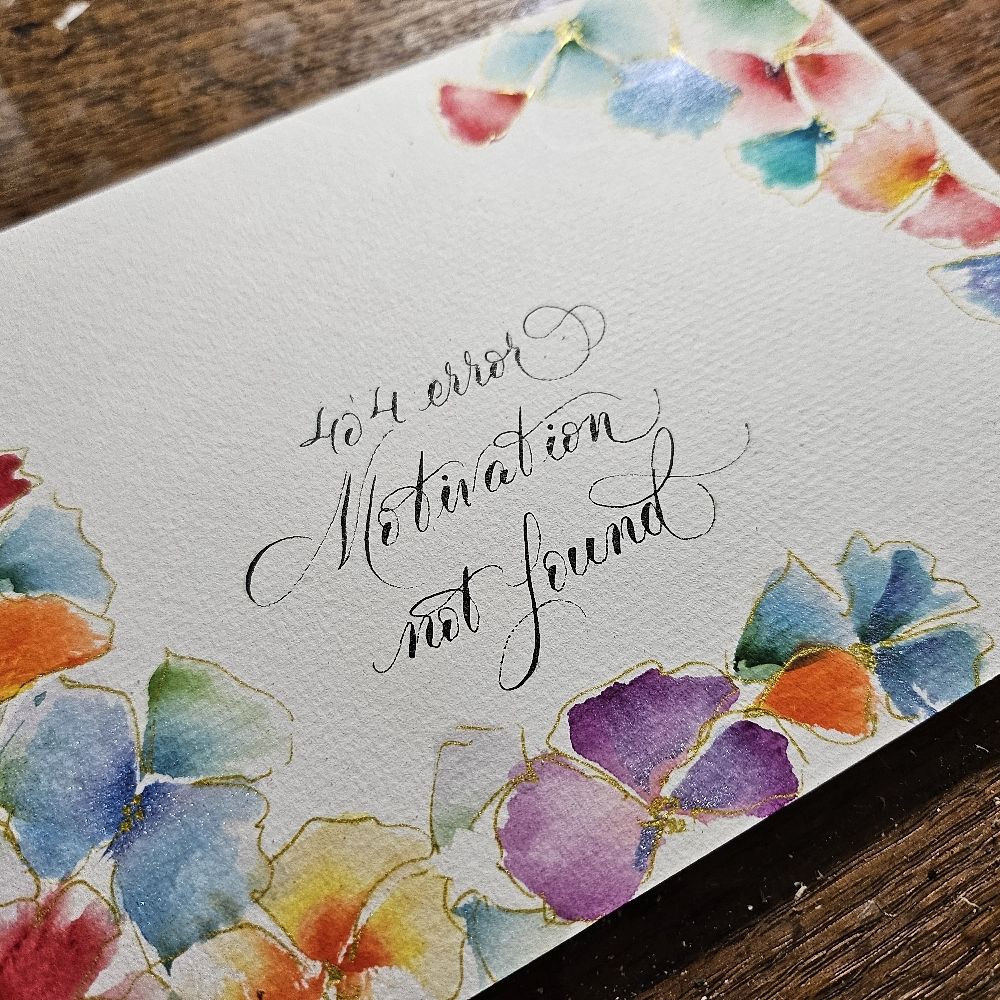 404 error
Motivation
not found